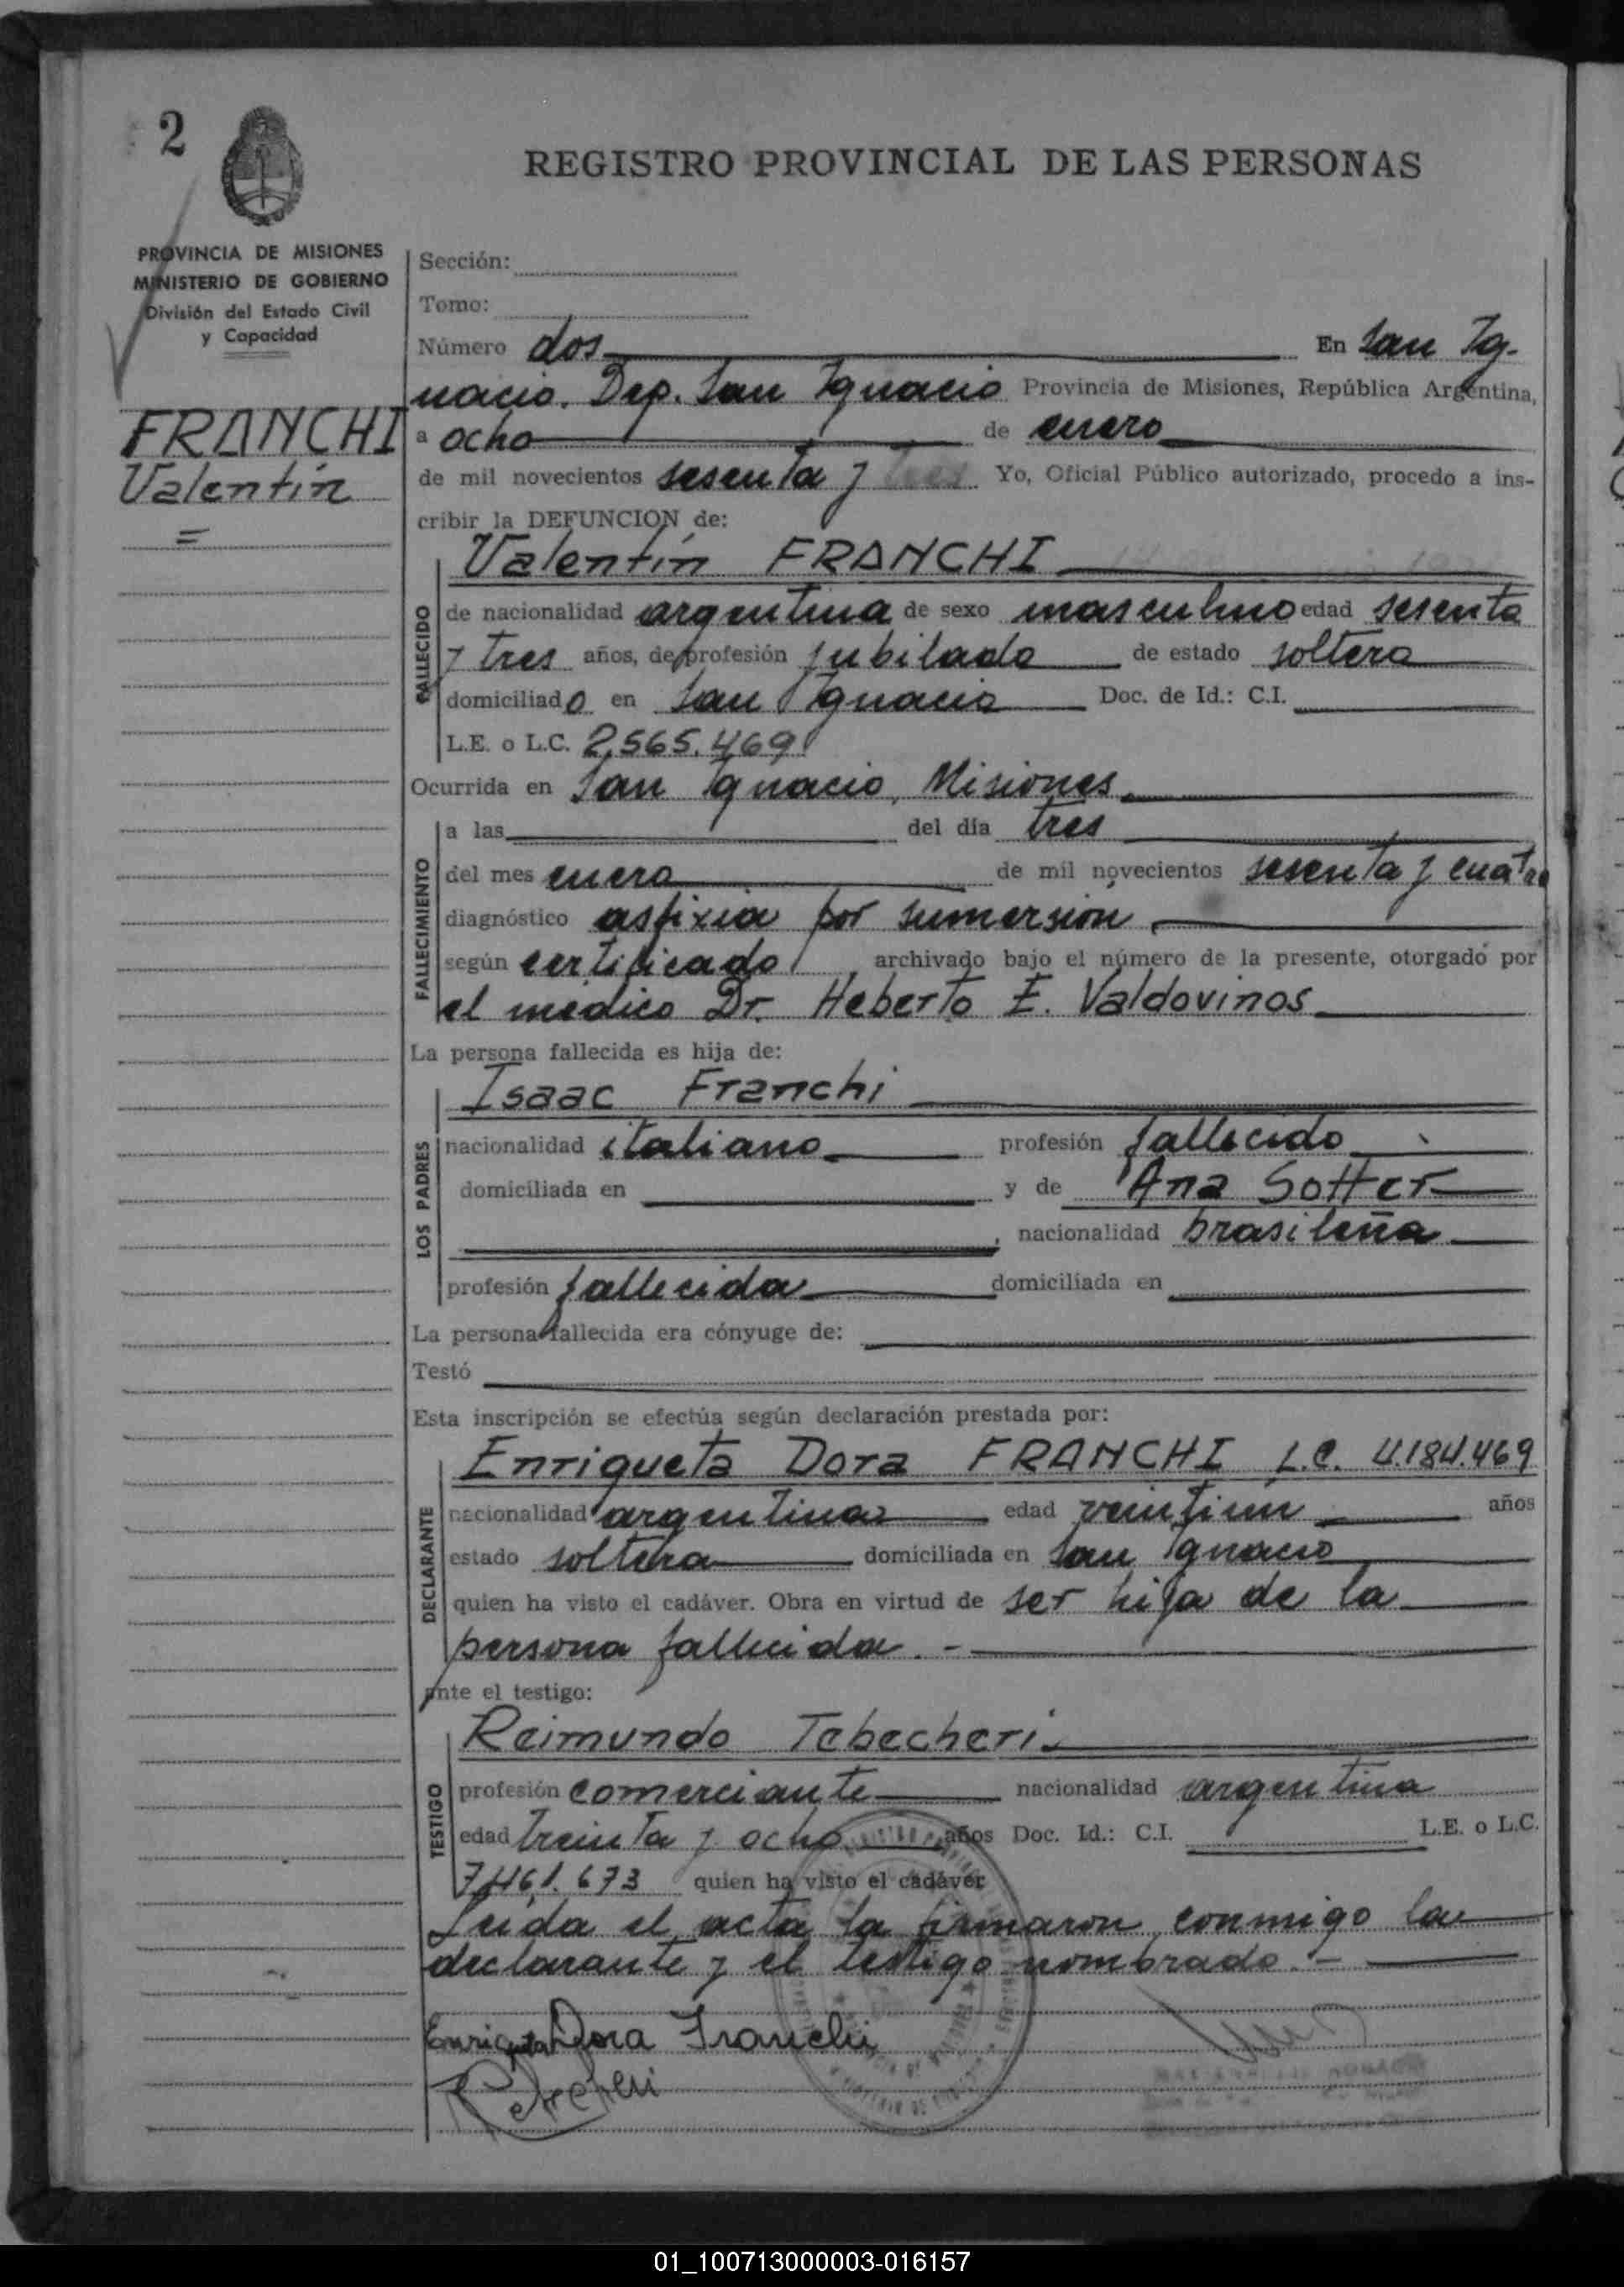 2
REGISTRO PROVINCIAL DE LAS PERSONAS
PROVINCIA DE MISIONES
MINISTERIO DE GOBIERNO
División del Estado Civil
y Capacidad
FRANCHI
Valentín
=
Sección:
Tomo:
Número dos En San Ig-
nacio. Dep. San Ignacio Provincia de Misiones, República Argentina,
a ocho de enero
de mil novecientos sesenta y tres Yo, Oficial Público autorizado, procedo a ins-
cribir la DEFUNCION de:
Valentín FRANCHI
FALLECIDO
de nacionalidad argentina de sexo masculino edad sesenta
y tres años, de profesión jubilado de estado soltero
domiciliado en San Ignacio Doc. de Id.: C.I.
L.E. o L.C. 2.565.469
Ocurrida en San Ignacio, Misiones.
FALLECIMIENTO
a las del día tres
del mes enero de mil novecientos sesenta y cuatro
diagnóstico asfixia por sumersión
según certificado, archivado bajo el número de la presente, otorgado por
el médico Dr. Heberto E. Valdovinos
La persona fallecida es hija de:
Isaac Franchi
LOS PADRES
nacionalidad italiano profesión fallecido
domiciliada en y de Ana Sotter
, nacionalidad brasileña
profesión fallecida domiciliada en
La persona fallecida era cónyuge de:
Testó
Esta inscripción se efectúa según declaración prestada por:
Enriqueta Dora FRANCHI L.C. 4.184.469
DECLARANTE
nacionalidad argentina edad veintiun años
estado soltera domiciliada en San Ignacio
quien ha visto el cadáver. Obra en virtud de ser hija de la
persona fallecida. -
ante el testigo:
Reimundo Tebecheri
TESTIGO
profesión comerciante nacionalidad argentina
edad treinta y ocho años Doc. Id.: C.I. L.E. o L.C.
7.461.673 quien ha visto el cadáver
Leída el acta la firmaron conmigo la
declarante y el testigo nombrado. -
Enriqueta Dora Franchi
01_100713000003-016157